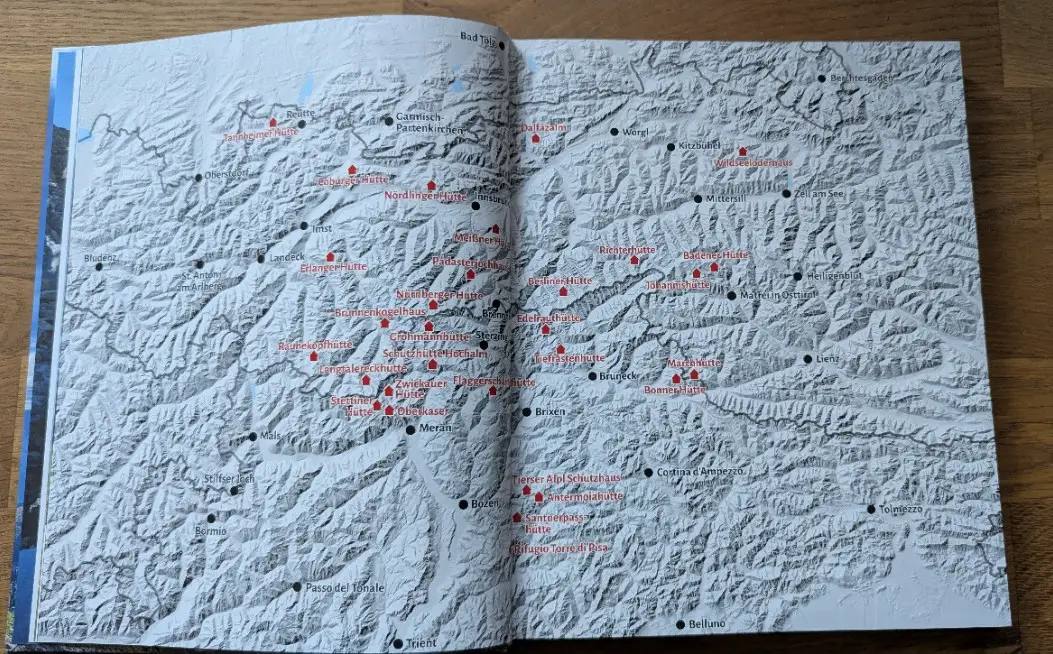 Bad Tölz
Berchtesgaden
Reutte
Tannheimer Hütte
Garmisch-
Partenkirchen
Dalfazalm
Wörgl
Kitzbühel
Wildseeloderhaus
Oberstdorf
Coburger Hütte
Nördlinger Hütte
Mittersill
Zell am See
Imst
Bludenz
St. Anton
am Arlberg
Landeck
Erlanger Hütte
Richterhütte
Badener Hütte
Johannishütte
Heiligenblut
Matrei in Osttirol
Berliner Hütte
Nürnberger Hütte
Brunnenkogelhaus
Grohmannhütte
Edelrauthütte
Tiefrastenhütte
Schutzhütte Hochalm
Rauhekopfhütte
Langtalereckhütte
Zwickauer
Hütte
Stettiner
Hütte
Oberkaser
Bruneck
Marchhütte
Bonner Hütte
Lienz
Brixen
Meran
Mals
Stilfser Joch
Bormio
Bozen
Cortina d'Ampezzo
Tierser Alpl Schutzhaus
Antermoiahütte
Santnerpass-
hütte
Rifugio Torre di Pisa
Tolmezzo
Passo del Tonale
Belluno
Trient